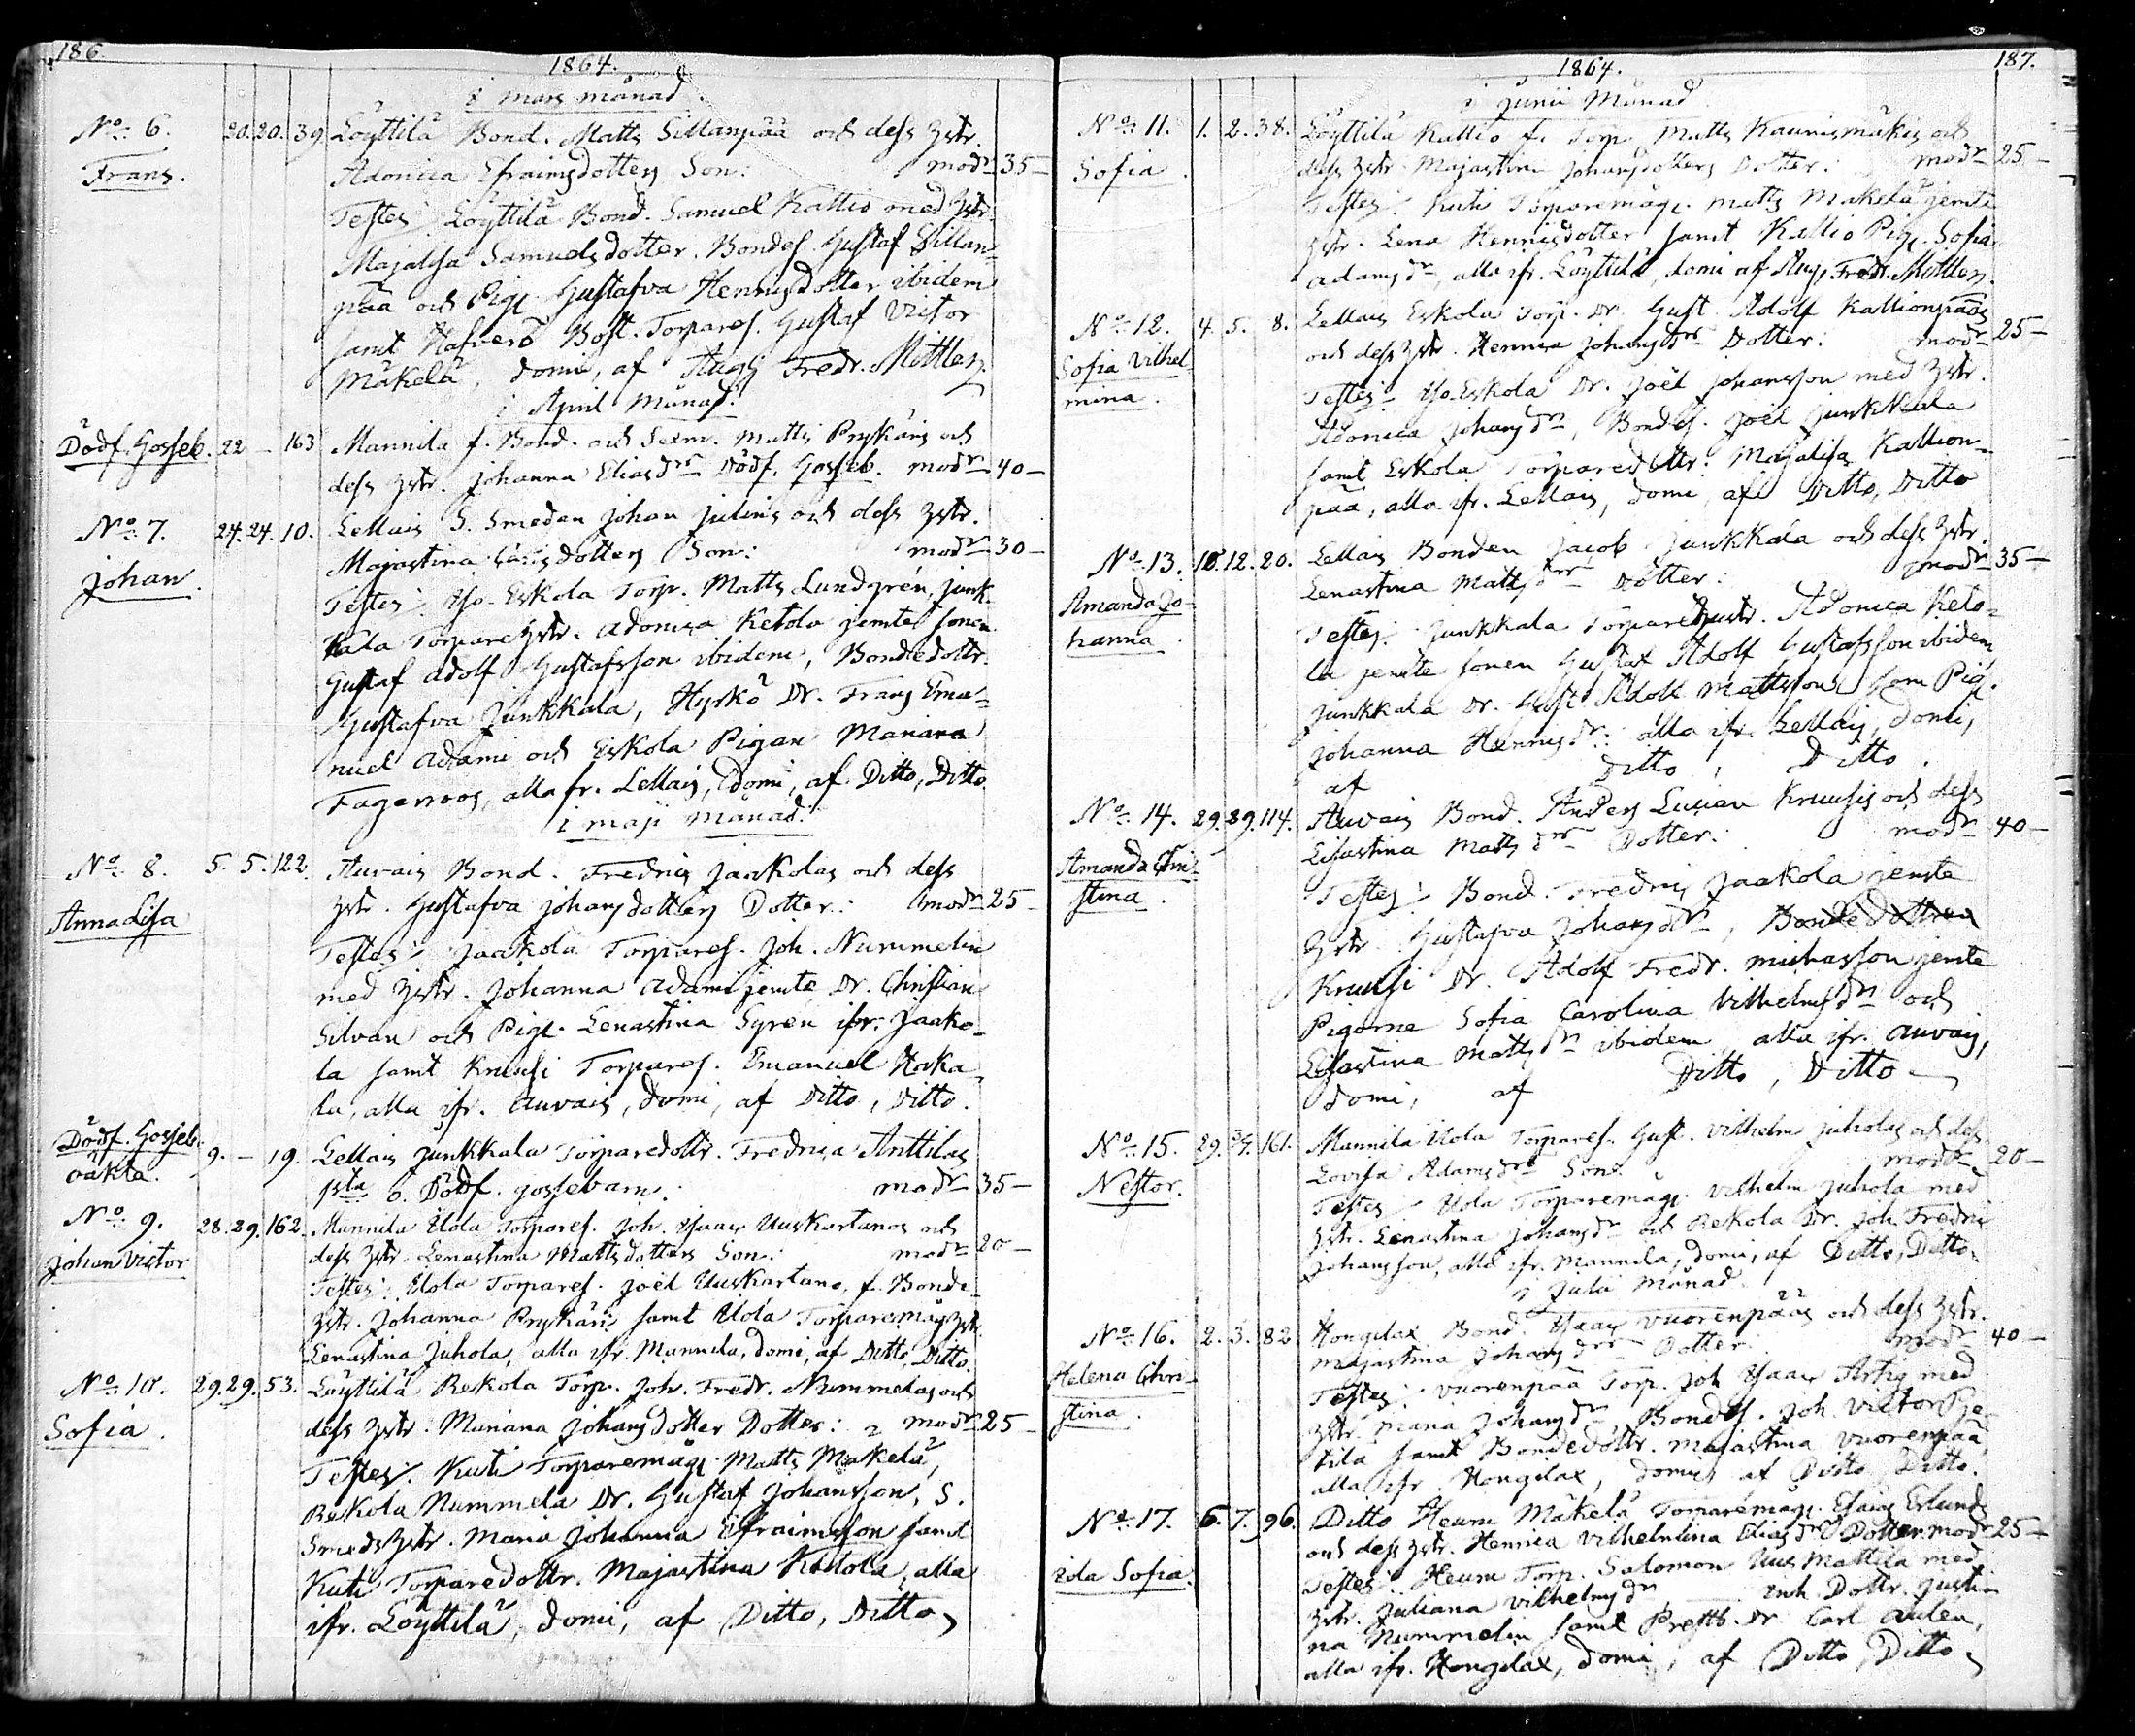 186.
1864.
i mars månad.
No 6. 20. 20. 39. Löyttilä Bond. Matts Sillanpää och dess hstr.
Frans. Adonica Efraimsdotters Son: modr 35 –
Testes: Löyttilä Bond. Samuel Kallio med hstr.
Majalisa Samuelsdotter. Bondes. Gustaf Sillan-
pää och Pig. Gustafva Henricsdotter ibidem
samt Hafverö Bost. Torpares. Gustaf Victor
Mäkelä, domi, af Aug Fredr. Mollen.
i April Månad.
Dödf. Gosseb. 22 – 163 Mannila f. Bond. och Sexm. Matts Prykäris och
dess hstr. Johanna Eliasdrs Dödf. Gosseb. modr 40 –
No 7. 24. 24. 10. Lellais S. Smeden Johan Julins och dess hstr.
Johan. Majastina dotters Son: modr 30 –
Testes: Yso-Eskola Torp. Matts Lundgrén, Junk-
kala Torpare hstr. Adonica Ketola jemte sonen
Gustaf Adolf Gustafsson ibidem, Bondedottr.
Gustafva Junkkala, Hyrkö Dr. Frans Ema-
nuel Adami och Eskola Pigan Mariana
Fagerroos, alla fr. Lellais, domi, af Ditto, Ditto.
i maji månad.
No 8. 5. 5. 122. Auvais Bond. Fredric Jaakolas och dess
Anna Lisa hstr. Gustafva Johansdotters Dotter: modr 25 –
Testes: Jaakola Torpares. Joh. Nummelin
med hstr. Johanna Adami jemte Dr. Christian
Silvan och Pig. Lenastina Syren ifr. Jaako-
la samt Kruusi Torpares. Emanuel Haka-
la, alla ifr. Auvais, domi, af Ditto, Ditto.
Dödf. Gosseb. 9. – 19. Lellais Junkkala Torparedottr. Fredrica Anttilas
oäkta. 1sta o. Dödf. gossebarn: modr 35 –
No 9. 28. 29. 162. Mannila Uola Torpares. Joh. Isaac Uuskartanos och
Johan Victor dess hstr. Lenastina Mattsdotters Son: modr 20 –
Testes: Uola Torpares. Joël Uuskartano, f. Bonde-
hstr. Johanna Prykäri samt Uola Torparemåg hstr.
Lenastina Juhola, alla ifr. Mannila, domi, af Ditto, Ditto.
No 10. 29. 29. 53. Löyttilä Rekola Torp. Joh. Fredr. Nummelas och
Sofia. dess hstr: Mariana Johansdotter Dotter: modr 25 –
Testes: Kuti Torparemåg: Matts Mäkelä,
Rekola Nummela Dr. Gustaf Johansson, S.
Smeds hstr. Maria Johanna Efraimsson samt
Kuti Torparedottr. Majastina Ketola, alla
ifr. Löyttilä, domi, af Ditto, Ditto,
187.
1864.
i Junii Månad
No 11. 1. 2. 38. Löyttilä Kallio f. Torp. Matts Kaunismäkis och
Sofia. dess hstr. Majastina Johansdotters Dotter: modr 25 –
Testes: Kuti Torparemåg. Matts Mäkelä jemte
hstr. Lena Henricsdotter samt Kallio Pig. Sofia
Adamsdr, alla ifr. Löyttilä, domi af Aug. Fredr. Mollen.
No 12. 4. 5. 8. Lellais Eskola Torp. Dr. Gust. Adolf Kallionpääs
Sofia Vilhel- och dess hstr. Henrica Johansdrs Dotter: modr 25 –
mina. Testes: Yso-Eskola Dr. Joël Johansson med hstr.
Adonica Johansdr, Bondes. Joël Junkkala
samt Eskola Torparedottr: Majalisa Kallion-
pää, alla ifr. Lellais, domi, af Ditto, Ditto
No 13. 10. 12. 20. Lellais Bonden Jacob Junkkala och dess hstr.
Amanda Jo- Lenastina Mattsdrs Dotter: modr 35 –
hanna. Testes: Junkkala Torparehustr. Adonica Keto-
la jemte sonen Gustaf Adolf Gustafsson ibidem,
Junkkala Dr. Gust. Adolf Mattsson sam Pig.
Johanna Henricsdr: alla ifr. Lellais, domi,
af Ditto, Ditto.
No 14. 29. 29. 114. Auvais Bond. Anders Lucian Kruusis och dess
Amanda Chri- Lisastina Mattsdrs Dotter: modr 40 –
stina. Testes: Bond. Fredric Jaakola jemte
hstr Gustafva Johansdr, Bondedottren
Kruusi Dr. Adolf Fredr. Michasson jemte
Pigorne Sofia Carolina Vilhelmsdr och
Lisastina Mattsdr ibidem, alla ifr. Auvais,
domi, af Ditto, Ditto –
No 15. 29. 161. Mannila Uola Torpares. Gust. Vilhelm Juholas och dess
Nestor. Lovisa Adamsdrs Son: modr 20 –
Testes: Uola Torparemåg. Vilhelm Juhola med
hstr. Lenastina Johansdr och Rekola Dr. Joh. Fredric
Johansson, alla ifr. Mannila, domi, af Ditto, Ditto.
i Julii Månad.
No 16. 2. 3. 82. Hongilax Bond. Isaac Vuorenpääs och dess hstr.
Helena Chri- Majastina Johansdrs Dotter: modr 40 –
stina. Testes: Vuorenpää Torp. Joh Isaac Artig med
hstr. Maria Johansdr, Bondes. Joh. Victor Pje-
tilä samt Bondedottr. Majastina Vuorenpää
alla ifr. Hongilax, domi, af Ditto, Ditto.
No 17. 6. 7. 96. Ditto Heuru Mäkelä Torparemåg. Esaias Erlunds
Ida Sofia. och dess hstr. Henrica Vilhelmina Eliasdrs Dotter modr 25 –
Testes: Heuru Torp. Salomon Uusmattila med
hstr. Juliana Vilhelmsdr, Inh. Dottr. Justi-
na Nummelin samt Prestb. Dr. Carl Aulen,
alla ifr. Hongilax, domi, af Ditto, Ditto,